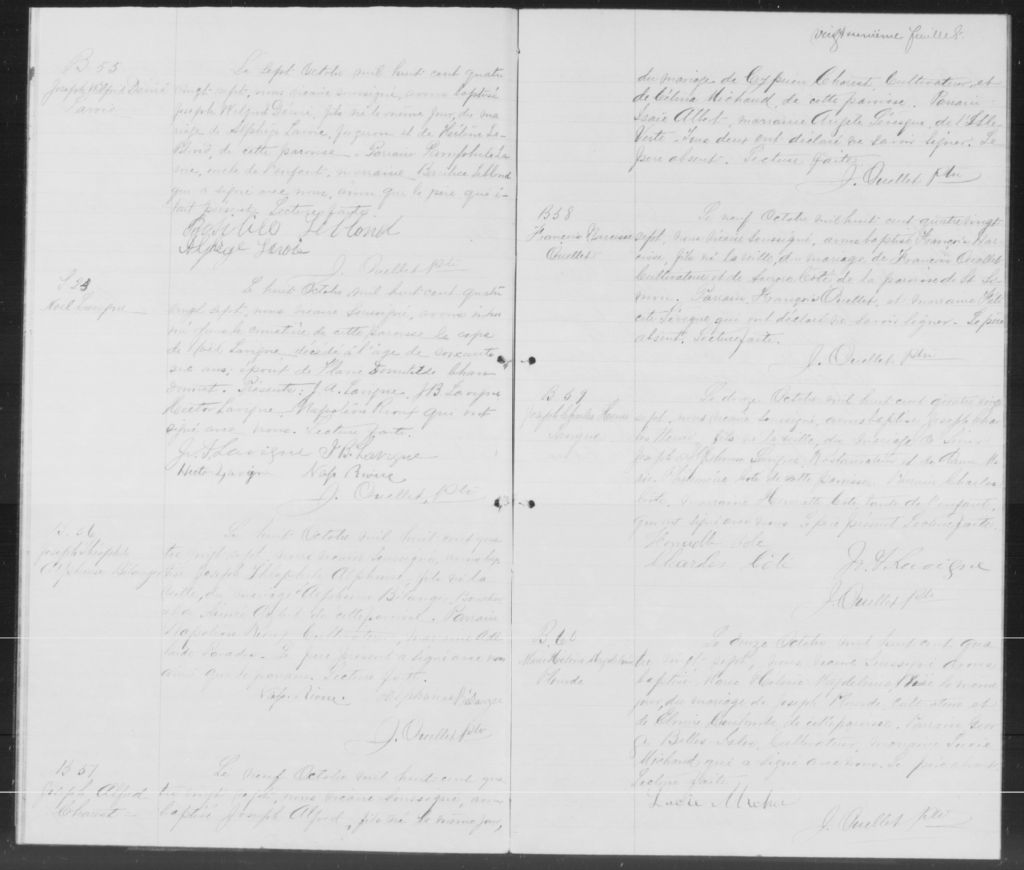 B 55
Joseph Wilfrid Désiré
Lavoie
Le sept Octobre mil huit cent quatre
vingt sept, nous vicaire soussigné, avons baptisé
Joseph Wilfrid Désiré, fils né le même jour, du ma
riage de Alphège Lavoie, et de Hélène Le
Blond, de cette paroisse. Parrain La
voie, oncle de l'enfant, marraine Leblond
qui a signé avec nous, ainsi que le père qui é-
tait présent. Lecture faite.
Leblond
Alphège Lavoie
J. Ouellet ptre
S 23
Noël Lavigne
Le huit Octobre mil huit cent quatre
vingt sept, nous vicaire soussigné, avons inhu
mé dans le cimetière de cette paroisse le corps
de Noël Lavigne, décédé à l'âge de soixante
six ans, époux de Domitilde Chau
. Présents: J. A. Lavigne, J. B. Lavigne
Hector Lavigne, Napoléon Rioux qui ont
signé avec nous. Lecture faite.
J. A. Lavigne J. B. Lavigne
Hector Lavigne Nap. Rioux
J. Ouellet, ptre
B. 56
Joseph Théophile
Alphonse Bélanger
Le huit Octobre mil huit cent qua
tre vingt sept, nous vicaire soussigné, avons bap
tisé Joseph Théophile Alphonse, fils né la
veille, du mariage Alphonse Bélanger, Boucher
et de de cette paroisse. Parrain
Napoléon Rioux Cultivateur, marraine Adé
laïde Paradis. Le père présent a signé avec nous
ainsi que le parrain. Lecture faite.
Nap. Rioux Alphonse Bélanger
J. Ouellet ptre
B 57
Joseph Alfred
Charest
Le neuf Octobre mil huit cent qua
tre vingt sept, nous vicaire soussigné, avons
baptisé Joseph Alfred, fils né le même jour,
vingt neuvième feuillet.
du mariage de Cyprien Charest, Cultivateur, et
de Célina Michaud, de cette paroisse. Parrain
Isaïe Allot, marraine Angèle Lévesque, de l'Isle
Verte. Tous deux ont déclaré ne savoir signer. Le
père absent. Lecture faite.
J. Ouellet ptre
B 58
François Narcisse
Ouellet
Le neuf Octobre mil huit cent quatre vingt
sept, nous vicaire soussigné, avons baptisé François Nar
cisse, fils né la veille, du mariage de François Ouellet
Cultivateur et de Côté, de la paroisse de St Si
mon. Parrain François Ouellet, et marraine Féli
cité Lévesque qui ont déclaré ne savoir signer. Le père
absent. Lecture faite.
J. Ouellet ptre
B 59
Joseph Charles Henri
Lavigne
Le douze Octobre mil huit cent quatre vingt
sept, nous vicaire soussigné, avons baptisé Joseph Char
les Henri, fils né la veille, du mariage de
Joseph Alphonse Lavigne, et de
Philomène Côté de cette paroisse. Parrain Charles
Côté, marraine Henriette Côté tante de l'enfant,
qui ont signé avec nous. Le père présent. Lecture faite.
Henriette Côté
Charles Côté J. A. Lavigne
J. Ouellet ptre
B. 60
Marie Hélène Magdeleine
Plourde
Le onze Octobre mil huit cent qua
tre vingt sept, nous vicaire soussigné avons
baptisé Marie Hélène Magdeleine, née le même
jour, du mariage de Joseph Plourde, cultivateur et
de de cette paroisse. Parrain
Belles-Isles, Cultivateur, marraine Lucie
Michaud qui a signé avec nous. Le père absent
Lecture faite.
Lucie
J. Ouellet ptre